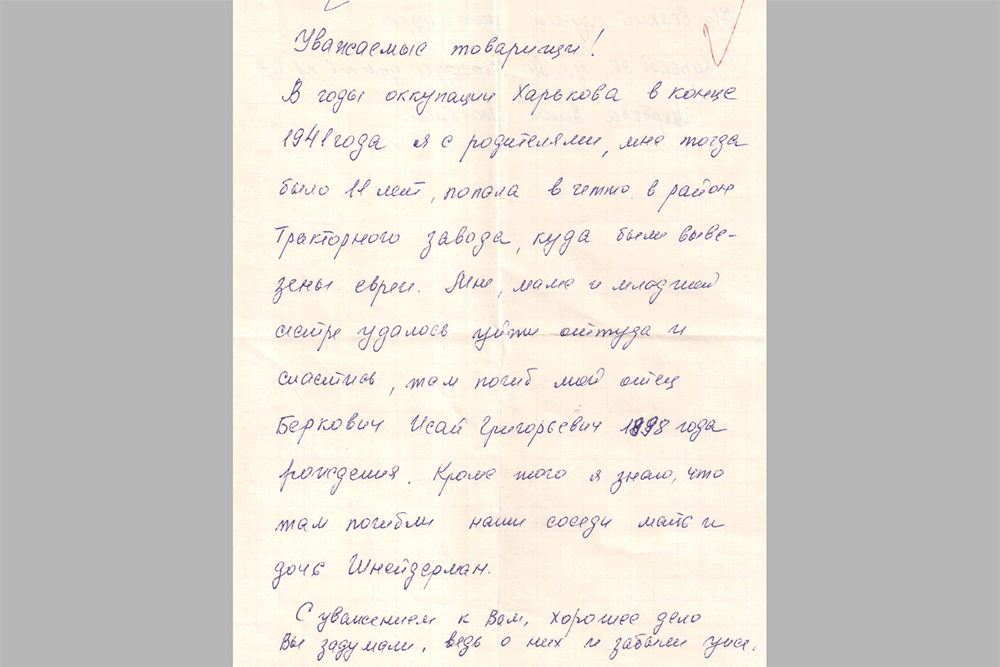 Уважаемые товарищи!
В годы оккупации Харькова в конце
1941 года я с родителями, мне тогда
было 11 лет, попала в гетто в район
Тракторного завода, куда были выве-
зены евреи. Мне, маме и младшей
сестре удалось уйти оттуда и
спастись, там погиб мой отец
Беркович Исай Григорьевич 1898 года
рождения. Кроме того я знаю, что
там погибли наши соседи мать и
дочь Шнейдерман.
С уважением к Вам, хорошее дело
Вы задумали, ведь о них и забыли уже.